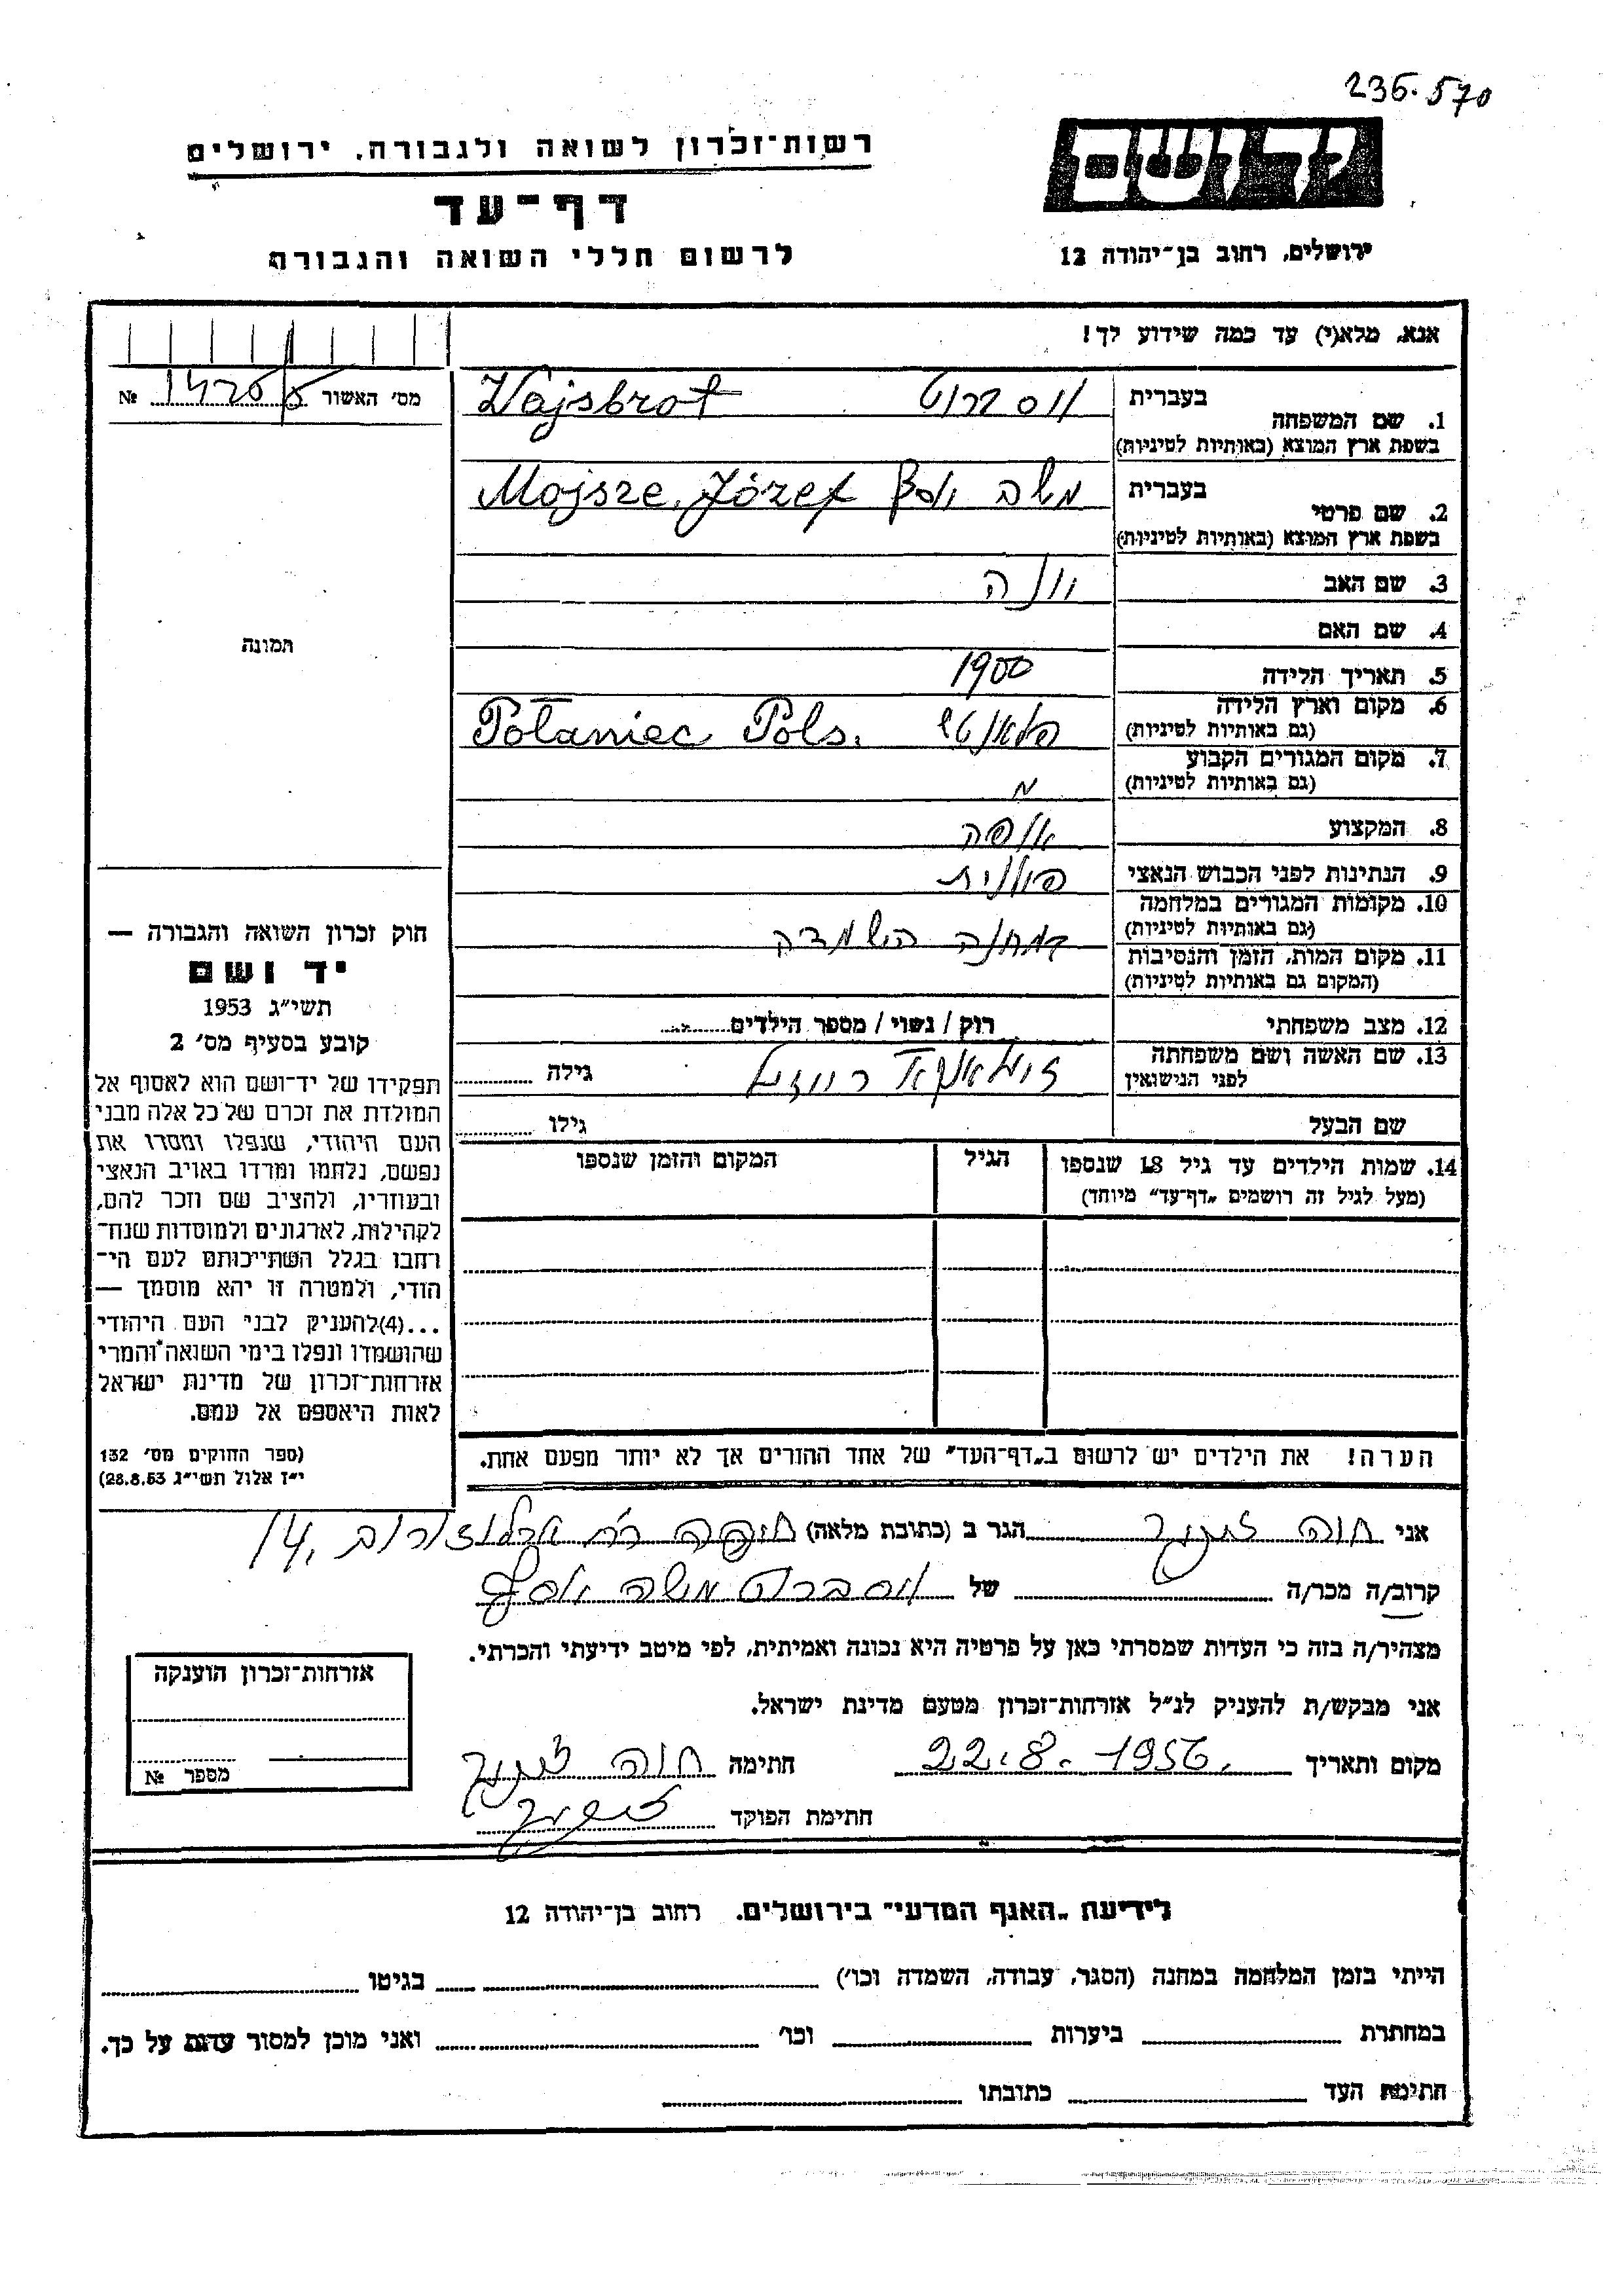 236.570
יד ושם
רשות־זכרון לשואה ולגבורה, ירושלים
דף־עד
ירושלים, רחוב בן־יהודה 12
לרשום חללי השואה והגבורה
אנא, מלא(י) עד כמה שידוע לך!
מס׳ האשור №
1. שם המשפחה
בעברית וסברוט Wajsbrot
בשפת ארץ המוצא (באותיות לטיניות)
2. שם פרטי
בעברית משה יוסף Mojsze, Józef
בשפת ארץ המוצא (באותיות לטיניות)
3. שם האב יונה
4. שם האם
תמונה
5. תאריך הלידה 1900
6. מקום וארץ הלידה Połaniec Pols.
(גם באותיות לטיניות)
7. מקום המגורים הקבוע
(גם באותיות לטיניות)
8. המקצוע אופה
9. הנתינות לפני הכבוש הנאצי פולנית
10. מקומות המגורים במלחמה
(גם באותיות לטיניות)
11. מקום המות, הזמן והנסיבות במחנה השמדה
(המקום גם באותיות לטיניות)
12. מצב משפחתי רוק / נשוי / מספר הילדים
13. שם האשה ושם משפחתה גילה
לפני הנישואין
שם הבעל גילו
חוק זכרון השואה והגבורה —
יד ושם
תשי״ג 1953
קובע בסעיף מס׳ 2
תפקידו של יד־ושם הוא לאסוף אל
המולדת את זכרם של כל אלה מבני
העם היהודי, שנפלו ומסרו את
נפשם, נלחמו ומרדו באויב הנאצי
ובעוזריו, ולהציב שם וזכר להם,
לקהילות, לארגונים ולמוסדות שנח־
רבו בגלל השתייכותם לעם הי־
הודי, ולמטרה זו יהא מוסמך —
...(4)להעניק לבני העם היהודי
שהושמדו ונפלו בימי השואה והמרי
אזרחות־זכרון של מדינת ישראל
לאות היאספם אל עמם.
(ספר החוקים מס׳ 132
י״ז אלול תשי״ג 28.8.53)
14. שמות הילדים עד גיל 18 שנספו הגיל המקום והזמן שנספו
(מעל לגיל זה רושמים „דף־עד״ מיוחד)
הערה! את הילדים יש לרשום ב„דף־העד״ של אחד ההורים אך לא יותר מפעם אחת.
אני חוה הגר ב (כתובת מלאה) חיפה רח׳ ארלוזורוב 14,
קרוב/ה מכר/ה של וסברוט משה יוסף
מצהיר/ה בזה כי העדות שמסרתי כאן על פרטיה היא נכונה ואמיתית, לפי מיטב ידיעתי והכרתי.
אני מבקש/ת להעניק לנ״ל אזרחות־זכרון מטעם מדינת ישראל.
מקום ותאריך 22.8.1956. חתימה חוה
חתימת הפוקד
אזרחות־זכרון הוענקה
מספר №
לידיעת „האגף המדעי״ בירושלים, רחוב בן־יהודה 12
הייתי בזמן המלחמה במחנה (הסגר, עבודה, השמדה וכו׳) בגיטו
במחתרת ביערות וכו׳ ואני מוכן למסור עדות על כך.
חתימת העד כתובתו